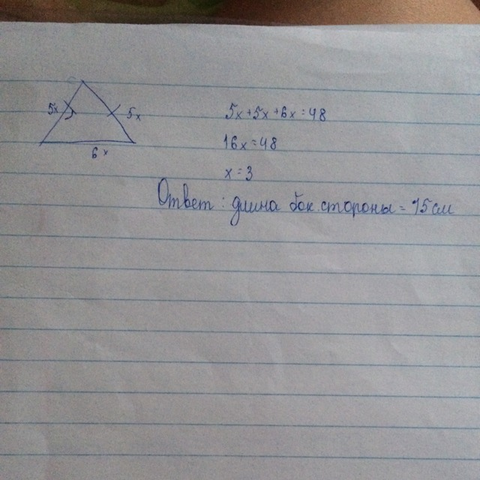 5x 5x
6x
5x+5x+6x=48
16x=48
x=3
Ответ: длина бок стороны = 15см